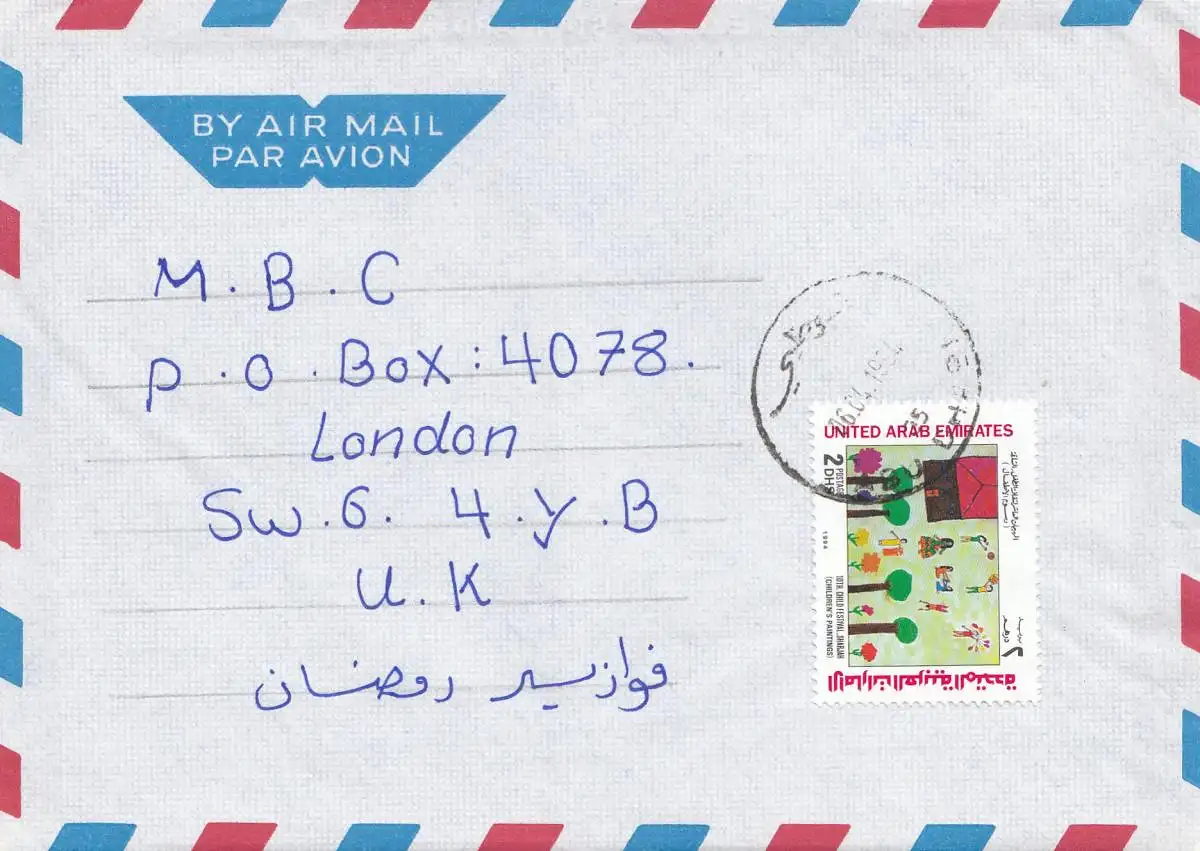 BY AIR MAIL
PAR AVION
M.B.C
P.O.Box:4078.
London
SW.6. 4.Y.B
U.K
فوازير رمضان
أبوظبي
ABU DHABI
UNITED ARAB EMIRATES
2
DHS
POSTAGE
1994
10TH. CHILD FESTIVAL, SHARJAH
(CHILDREN'S PAINTINGS)
(رسوم الأطفال)
بريد
٢ درهم
الإمارات العربية المتحدة